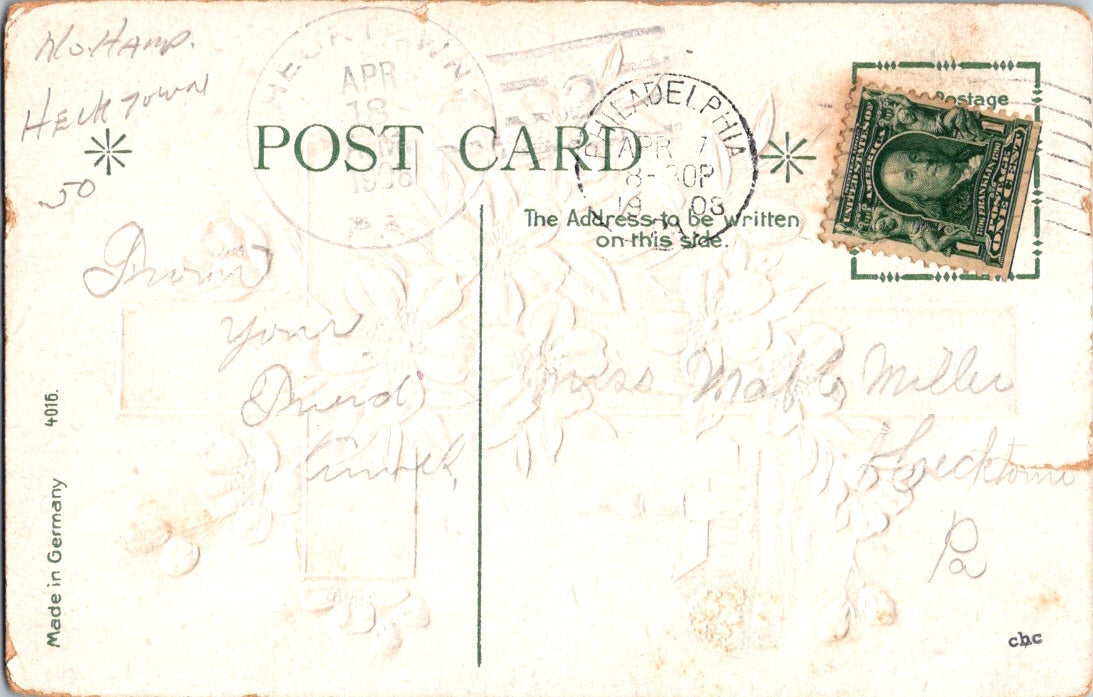 No. Hamp.
Hecktown
50
HECKTOWN
APR
18
1908
PA
PHILADELPHIA
APR 7
8-30P
19 08
PA
POST CARD
The Address to be written
on this side.
Postage
UNITED STATES OF
AMERICA
1 1
ONE CENT
From
your
Friend
Miss Mable Miller
Hecktown
Pa
4016.
Made in Germany
cbc